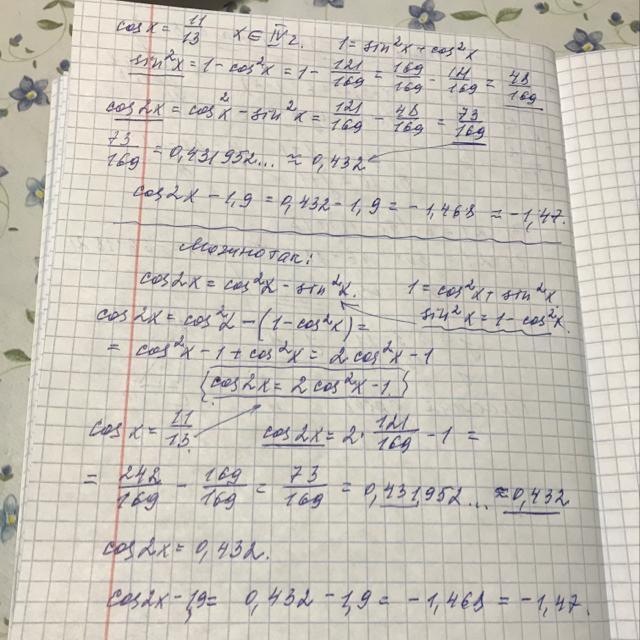 cos x = 11/13 x ∈ IV г. 1 = sin²x + cos²x
sin²x = 1 - cos²x = 1 - 121/169 = 169/169 - 121/169 = 48/169
cos2x = cos²x - sin²x = 121/169 - 48/169 = 73/169
73/169 = 0,431952... ≈ 0,432
cos2x - 1,9 = 0,432 - 1,9 = -1,468 ≈ -1,47.
Можно так:
cos2x = cos²x - sin²x. 1 = cos²x + sin²x
cos2x = cos²x - (1 - cos²x) = sin²x = 1 - cos²x.
= cos²x - 1 + cos²x = 2cos²x - 1
{cos2x = 2cos²x - 1.}
cos x = 11/13 cos2x = 2· 121/169 - 1 =
= 242/169 - 169/169 = 73/169 = 0,431952... ≈ 0,432
cos2x = 0,432.
cos2x - 1,9 = 0,432 - 1,9 = -1,468 = -1,47.